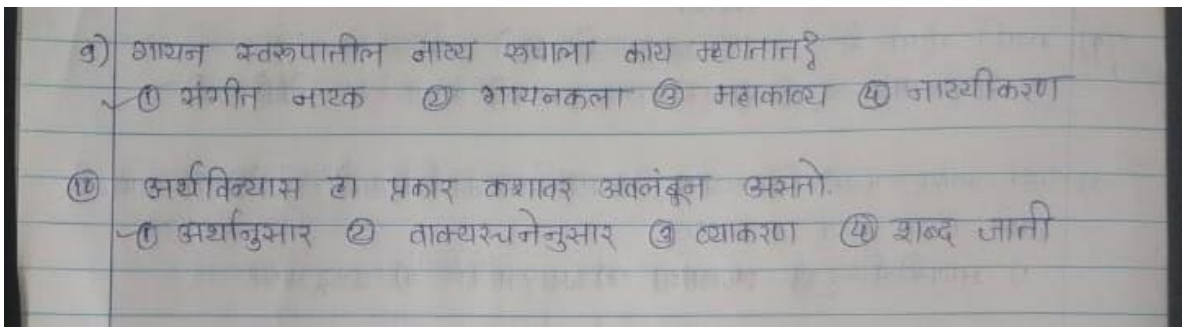 ९) गायन स्वरूपातील नाट्य रूपाला काय म्हणतात?
① संगीत नाटक ② गायनकला ③ महाकाव्य ④ नाट्यीकरण
⑩ अर्थविन्यास हा प्रकार कशावर अवलंबून असतो.
① अर्थानुसार ② वाक्यरचनेनुसार ③ व्याकरण ④ शब्द जाती